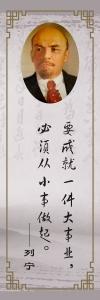 要成就一件大事业，
必须从小事做起。
——列宁